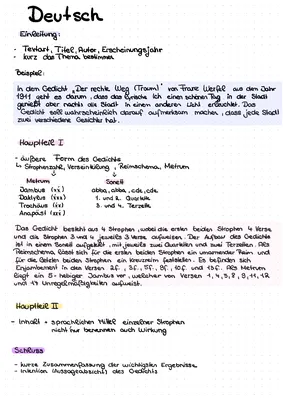 Deutsch
Einleitung:
- Textart, Titel, Autor, Erscheinungsjahr
- kurz das Thema bestimmen
Beispiel:
In dem Gedicht „Der rechte Weg (Traum)" von Franz Werfel aus dem Jahr
1911 geht es darum, dass das lyrische Ich einen schönen Tag in der Stadt
genießt aber nachts die Stadt in einem anderen Licht erleuchtet. Das
Gedicht soll wahrscheinlich darauf aufmerksam machen, dass jede Stadt
zwei verschiedene Gesichter hat.
Hauptteil I
- äußere Form des Gedichts
↳ Strophenzahl, Verseinteilung, Reimschema, Metrum
Metrum Sonett
Jambus (xx́) abba, abba, cde, cde
Daktylus (x́xx) 1. und 2. Quartule
Trochäus (x́x) 3. und 4. Terzelle
Anapäst (xxx́)
Das Gedicht besteht aus 4 Strophen, wobei die ersten beiden Strophen 4 Verse
und die Strophen 3 und 4 jeweils 3 Verse aufweisen. Der Aufbau des Gedichts
ist in einem Sonett aufgeteilt, mit jeweils zwei Quartellen und zwei Terzellen. Als
Reimschema lässt sich für die ersten beiden Strophen ein umarmender Reim und
für die letzten beiden Strophen ein Kreuzreim feststellen. Es befinden sich
Enjambement in den Versen 2f., 3f., 5f., 8f., 10f. und 13f. Als Metrum
liegt ein 5-hebiger Jambus vor, welcher von Versen 1, 4, 5, 8, 9, 11, 12
und 14 Unregelmäßigkeiten aufweist.
Hauptteil II
- Inhalt + sprachlichen Mittel einzelner Strophen
nicht nur benennen auch Wirkung
Schluss
- kurze Zusammenfassung der wichtigsten Ergebnisse
- Intention (Aussageabsicht) des Gedichts